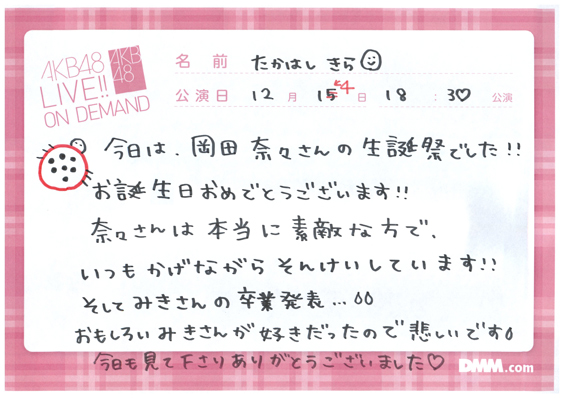 AKB48
LIVE!!
ON DEMAND
AKB
48
名前 たかはし きら
公演日 12月 15 4日 18:30 公演
今日は、岡田奈々さんの生誕祭でした!!
お誕生日おめでとうございます!!
奈々さんは本当に素敵な方で、
いつもかげながらそんけいしています!!
そしてみきさんの卒業発表...
おもしろいみきさんが好きだったので悲しいです
今日も見て下さりありがとうございました♡
DMM.com